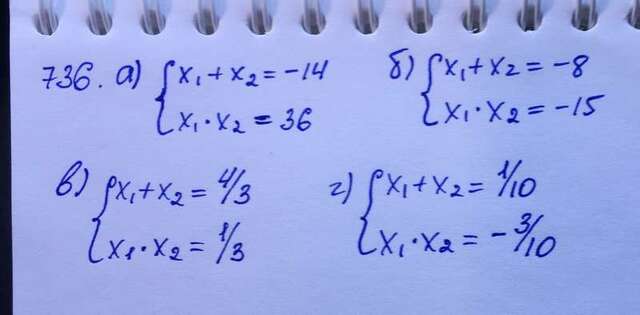 736. а) { x₁ + x₂ = -14
x₁ · x₂ = 36
б) { x₁ + x₂ = -8
x₁ · x₂ = -15
в) { x₁ + x₂ = 4/3
x₁ · x₂ = 1/3
г) { x₁ + x₂ = 1/10
x₁ · x₂ = -3/10